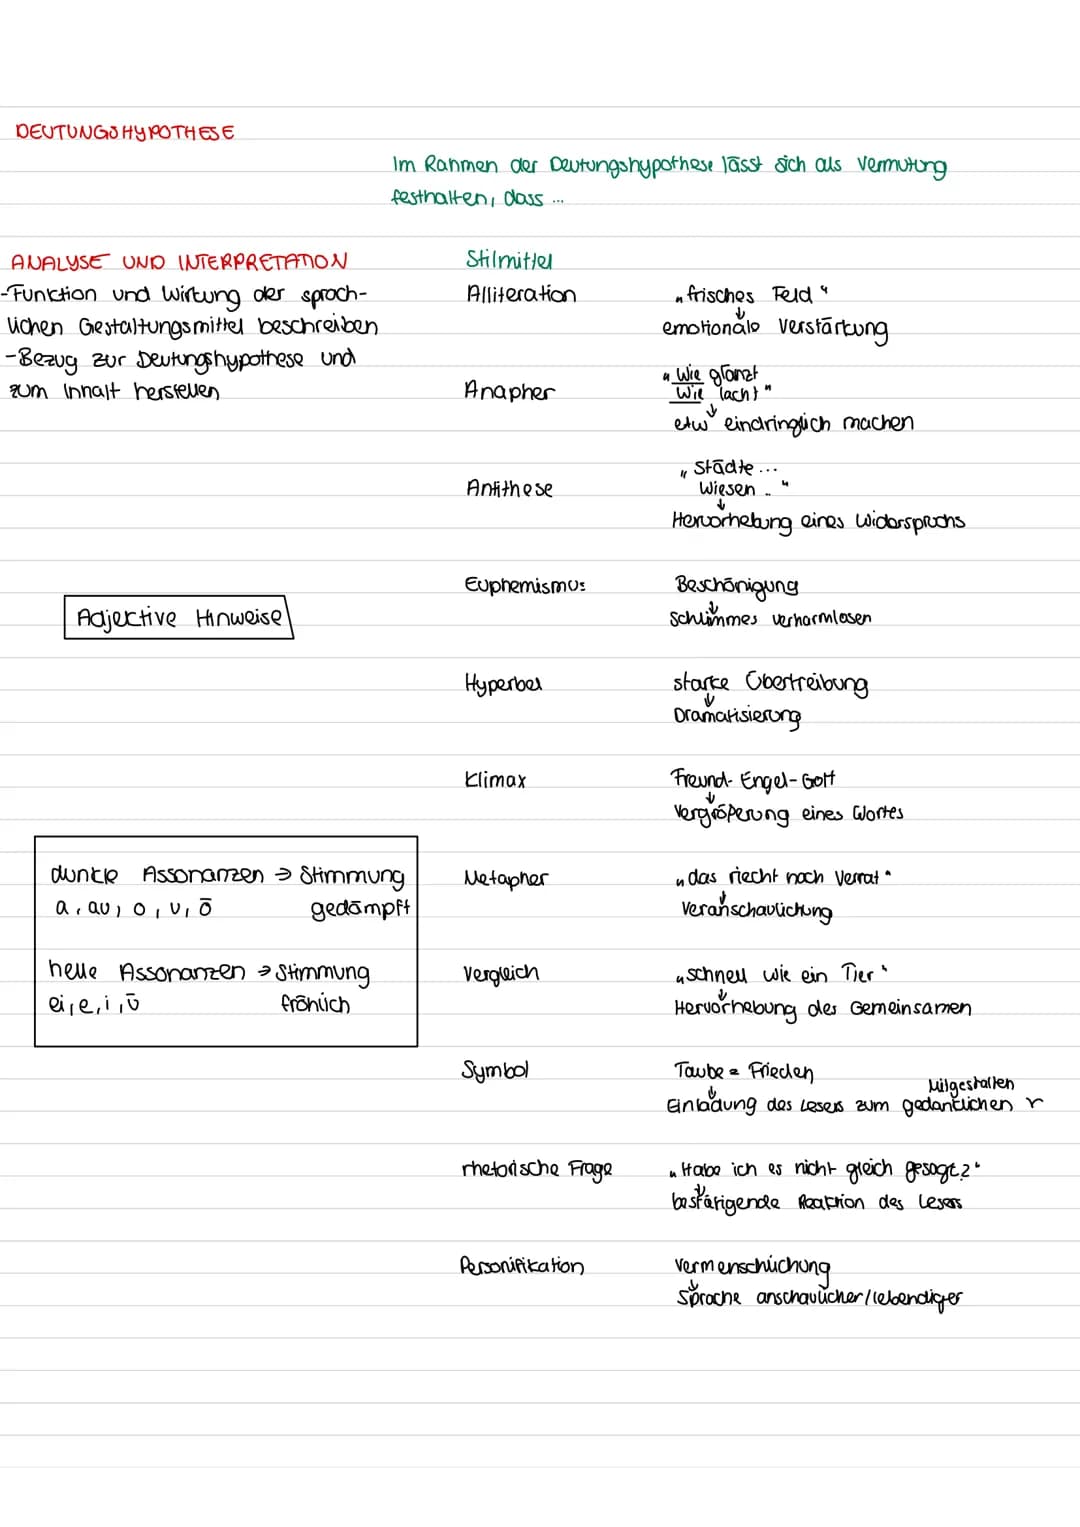 DEUTUNGSHYPOTHESE
Im Rahmen der Deutungshypothese lässt sich als Vermutung
festhalten, dass ...
ANALYSE UND INTERPRETATION
-Funktion und Wirkung der sprach-
lichen Gestaltungsmittel beschreiben
-Bezug zur Deutungshypothese und
zum Inhalt herstellen
Adjective Hinweise
dunkle Assonanzen → Stimmung
a, au, o, u, ö gedämpft
helle Assonanzen → Stimmung
ei, e, i, ü fröhlich
Stilmittel
Alliteration „frisches Feld“
↓
emotionale Verstärkung
Anapher „Wie glänzt
Wie lacht“
↓
etw eindringlich machen
Antithese „Städte...
Wiesen ..“
↓
Hervorhebung eines Widerspruchs
Euphemismus Beschönigung
↓
Schlimmes verharmlosen
Hyperbel starke Übertreibung
↓
Dramatisierung
Klimax Freund-Engel-Gott
↓
Vergrößerung eines Wortes
Metapher „das riecht nach Verrat“
↓
Veranschaulichung
Vergleich „schnell wie ein Tier‘
↓
Hervorhebung des Gemeinsamen
Symbol Taube = Frieden
↓
Einladung des Lesers zum gedanklichen Mitgestalten
rhetorische Frage „Habe ich es nicht gleich gesagt?“
↓
bestätigende Reaktion des Lesers
Personifikation Vermenschlichung
↓
Sprache anschaulicher/lebendiger